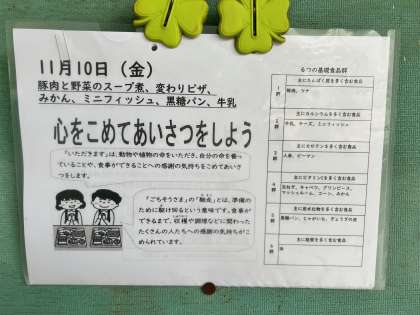 11月10日（金）
豚肉と野菜のスープ煮、変わりピザ、
みかん、ミニフィッシュ、黒糖パン、牛乳
心をこめてあいさつをしよう
「いただきます」は、動物や植物の命をいただき、自分の命を養っ
ていることや、食事ができることへの感謝の気持ちをこめてあいさ
つをします。
「ごちそうさま」の「馳走」とは、準備の
ために駆け回るという意味です。食事が
できるまで、収穫や調理などに関わった
たくさんの人たちへの感謝の気持ちがこ
められています。
6つの基礎食品群
主にたんぱく質を多く含む食品
1群
豚肉、ツナ
主にカルシウムを多く含む食品
2群
牛乳、チーズ、ミニフィッシュ
主にカロテンを多く含む食品
3群
人参、ピーマン
主にビタミンCを多く含む食品
4群
玉ねぎ、キャベツ、グリンピース、
マッシュルーム、コーン、みかん
主に炭水化物を多く含む食品
5群
黒糖パン、じゃがいも、ぎょうざの皮
主に脂質を多く含む食品
6群
油